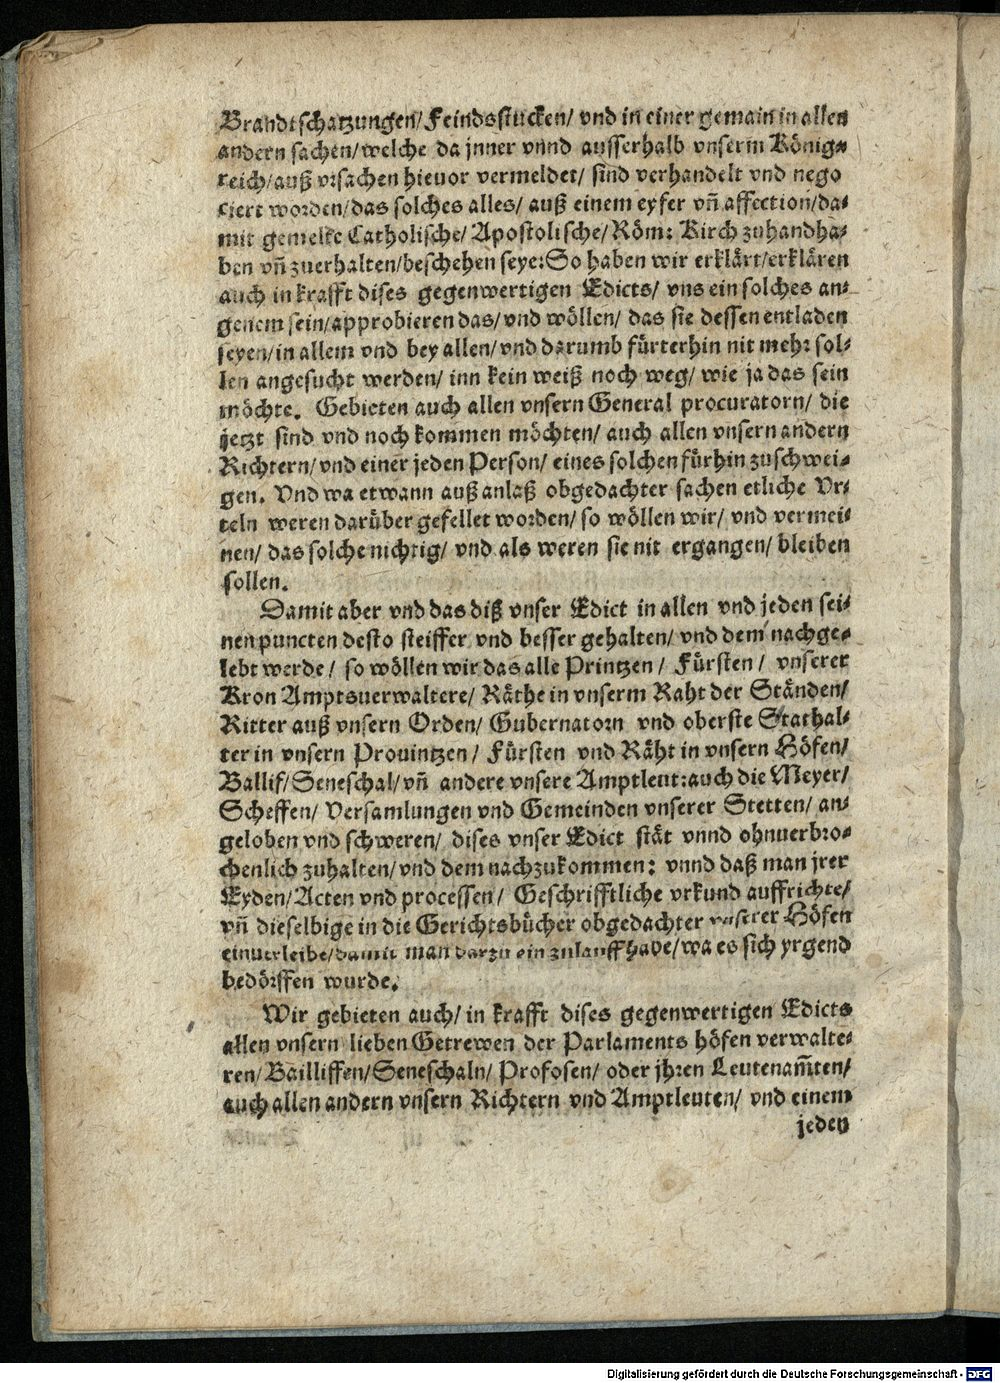 Brandtschatzungen/ Feindsstucken/ vnd in einer gemain in allen
andern sachen/ welche da jnner vnnd ausserhalb vnserm König⸗
reich/ auß vrsachen hieuor vermeldet/ sind verhandelt vnd nego
ciert worden/ das solches alles/ auß einem eyfer vñ affection/ da⸗
mit gemelte Catholische/ Apostolische/ Röm: Kirch zuhandha⸗
ben vñ zuerhalten/ beschehen seye: So haben wir erklärt/ erklären
auch in krafft dises gegenwertigen Edicts/ vns ein solches an⸗
genem sein/ approbieren das/ vnd wöllen/ das sie dessen entladen
seyen/ in allem vnd bey allen/ vnd darumb fürterhin nit mehr sol⸗
len angesucht werden/ inn kein weiß noch weg/ wie ja das sein
möchte. Gebieten auch allen vnsern General procuratorn/ die
jetzt sind vnd noch kommen möchten/ auch allen vnsern andern
Richtern/ vnd einer jeden Person/ eines solchen fürhin zuschwei⸗
gen. Vnd wa etwann auß anlaß obgedachter sachen etliche Vr⸗
teln weren darüber gefellet worden/ so wöllen wir/ vnd vermei⸗
nen/ das solche nichtig/ vnd als weren sie nit ergangen/ bleiben
sollen.
Damit aber vnd das diß vnser Edict in allen vnd jeden sei⸗
nen puncten desto steiffer vnd besser gehalten/ vnd dem nachge⸗
lebt werde/ so wöllen wir das alle Printzen/ Fürsten/ vnserer
Kron Amptsuerwaltere/ Räthe in vnserm Raht der Ständen/
Ritter auß vnsern Orden/ Gubernatorn vnd oberste Stathal⸗
ter in vnsern Prouintzen/ Fürsten vnd Räht in vnsern Höfen/
Ballif/ Seneschal/ vñ andere vnsere Amptleut: auch die Meyer/
Scheffen/ Versamlungen vnd Gemeinden vnserer Stetten/ an⸗
geloben vnd schweren/ dises vnser Edict stät vnnd ohnuerbro⸗
chenlich zuhalten/ vnd dem nachzukommen: vnnd daß man jrer
Eyden/ Acten vnd processen/ Geschrifftliche vrkund auffrichte/
vñ dieselbige in die Gerichtsbücher obgedachter vnserer Höfen
einuerleibe/ damit man darzu ein zulauff habe/ wa es sich yrgend
bedörffen wurde.
Wir gebieten auch/ in krafft dises gegenwertigen Edicts
allen vnsern lieben Getrewen der Parlaments höfen verwalte⸗
ren/ Bailliffen/ Seneschaln/ Profosen/ oder jhren Leutenam̃ten/
auch allen andern vnsern Richtern vnd Amptleuten/ vnd einem
jeden
Digitalisierung gefördert durch die Deutsche Forschungsgemeinschaft - DFG